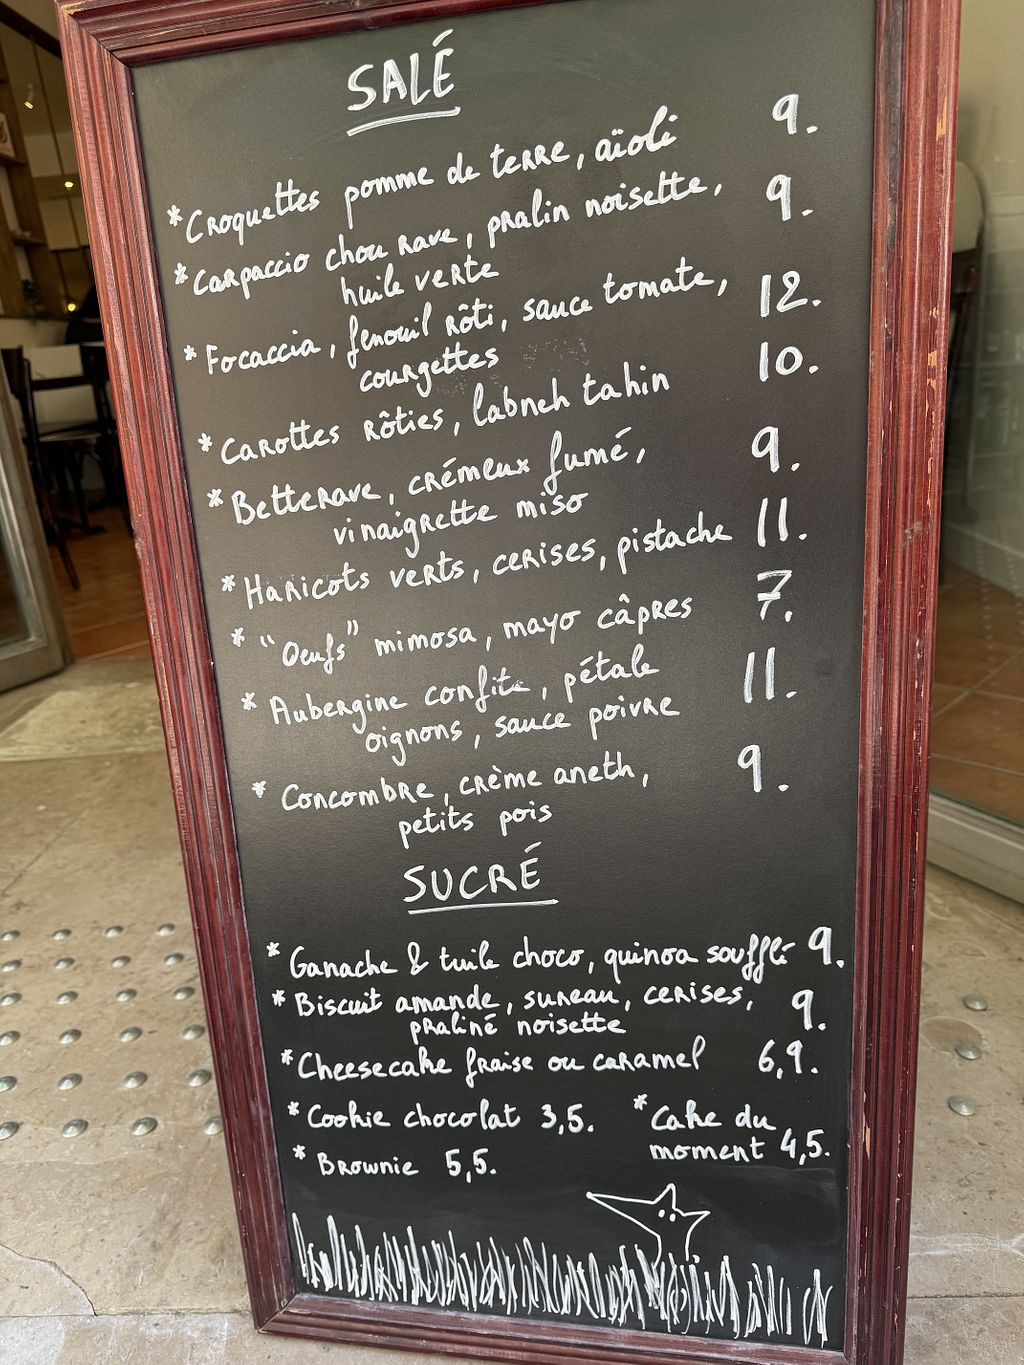 SALÉ
*Croquettes pomme de terre, aïoli 9.
*Carpaccio chou rave, pralin noisette, 9.
huile verte
*Focaccia, fenouil rôti, sauce tomate, 12.
courgettes
*Carottes rôties, labneh tahin 10.
*Betterave, crémeux fumé, 9.
vinaigrette miso
*Haricots verts, cerises, pistache 11.
*"Oeufs" mimosa, mayo câpres 7.
*Aubergine confite, pétale 11.
oignons, sauce poivre
*Concombre, crème aneth, 9.
petits pois
SUCRÉ
*Ganache & tuile choco, quinoa soufflé 9.
*Biscuit amande, sureau, cerises, 9.
praliné noisette
*Cheesecake fraise ou caramel 6,9.
*Cookie chocolat 3,5. *Cake du
moment 4,5.
*Brownie 5,5.